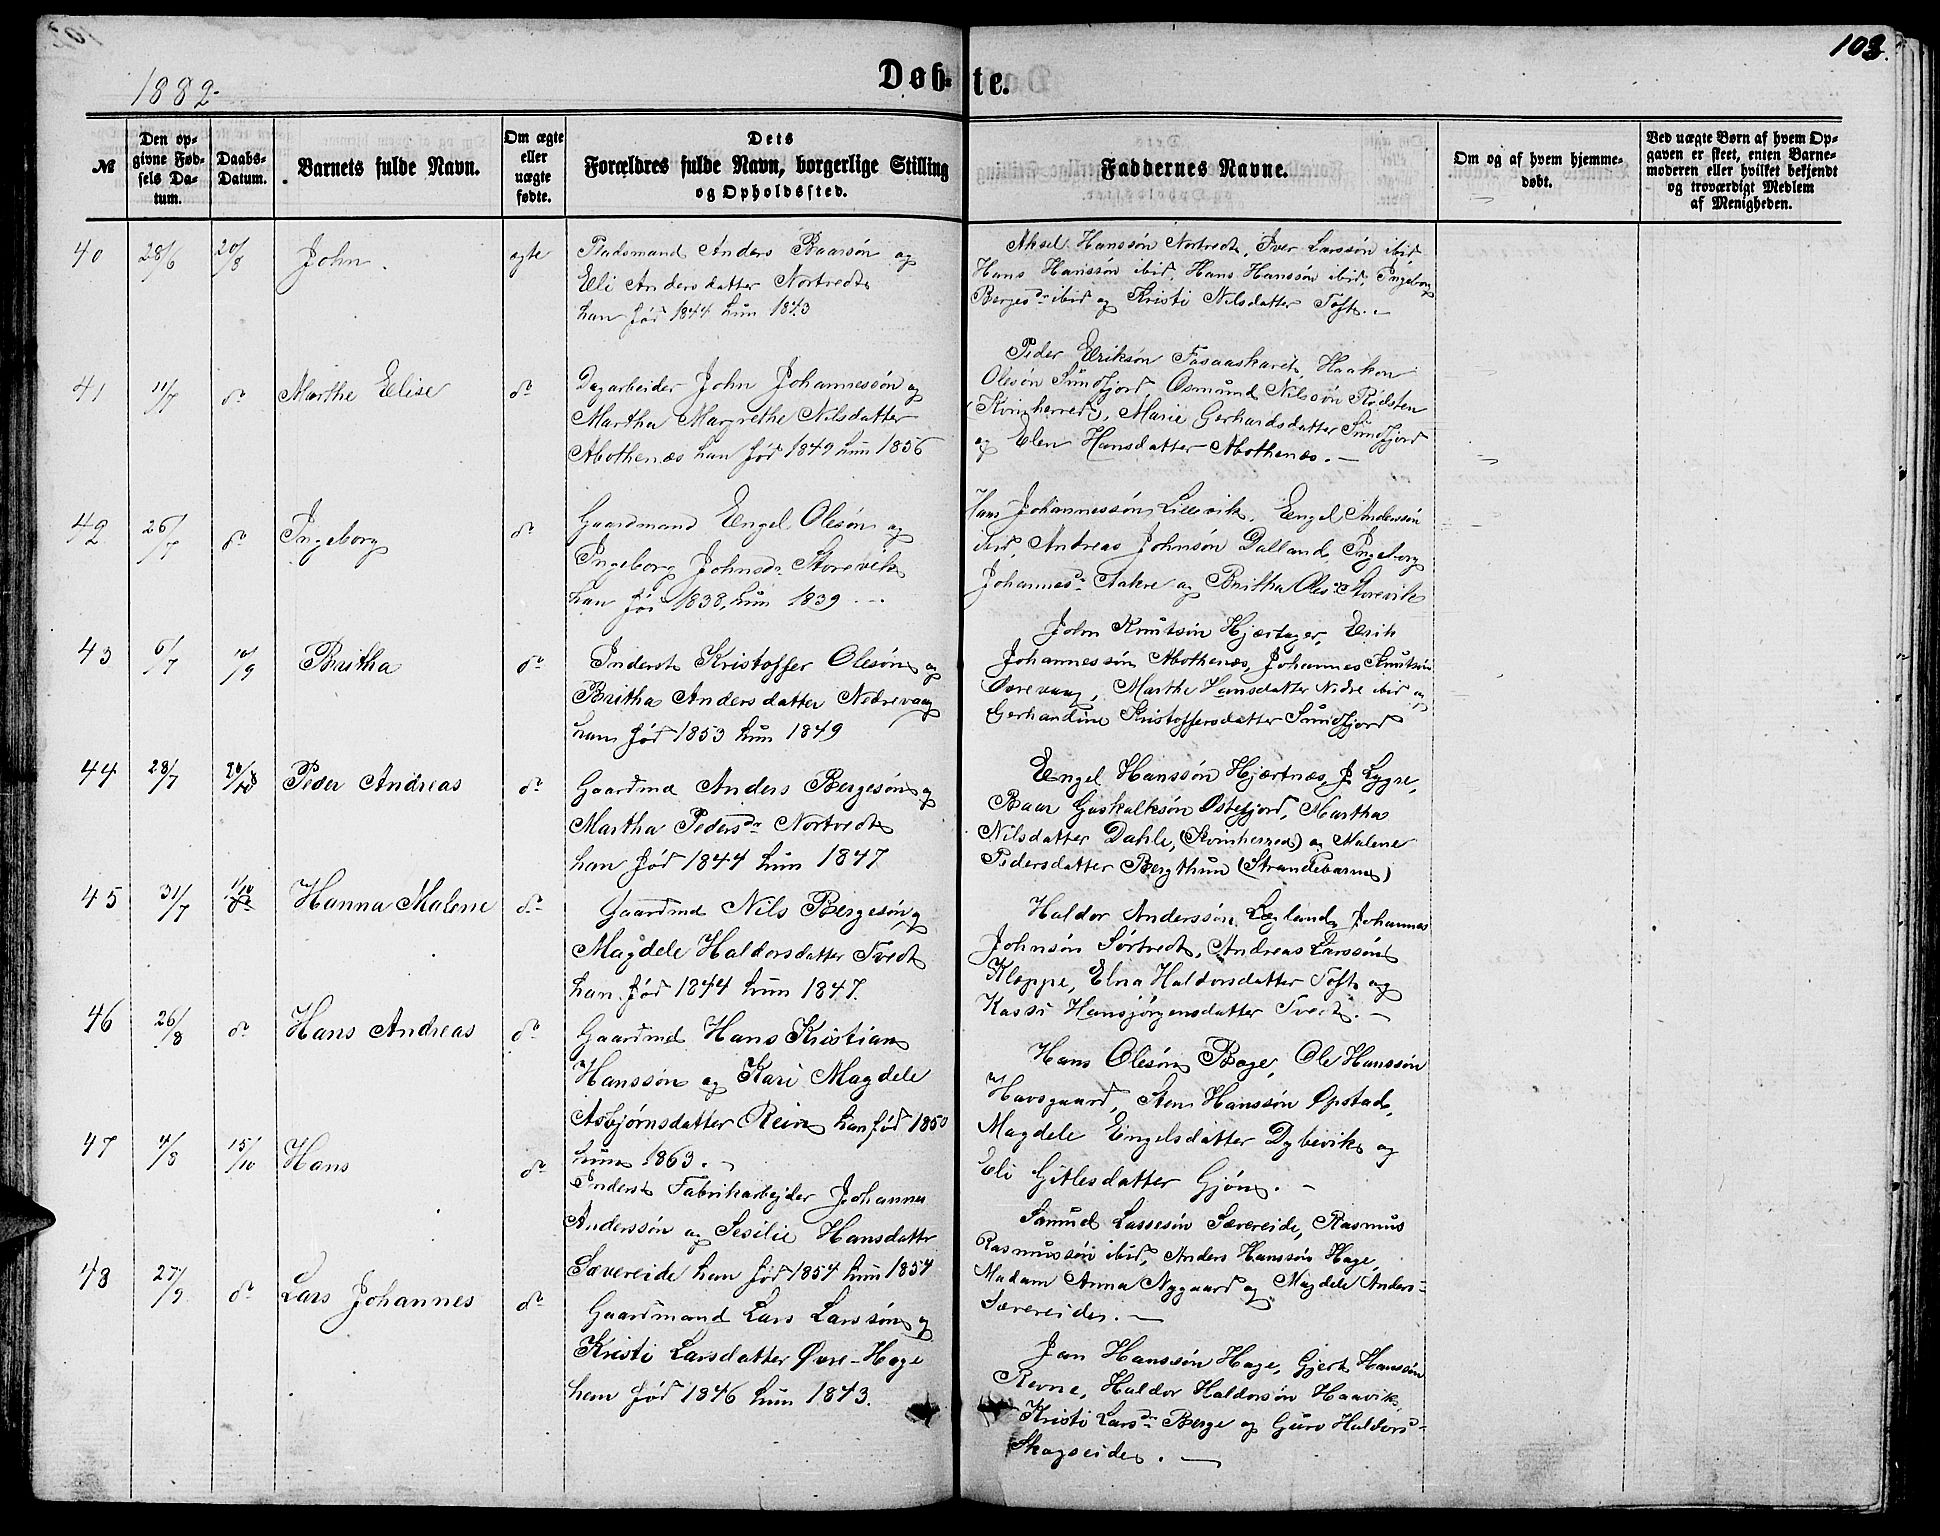 103.
1882.
Døb-te.
№
Den op-
givne Fød-
sels Da-
tum.
Daabs-
Datum.
Barnets fulde Navn.
Om ægte
eller
uægte
fødte.
Dets
Forældres fulde Navn, borgerlige Stilling
og Opholdssted.
Faddernes Navne.
Om og af hvem hjemme-
døbt.
Ved uægte Børn af hvem Op-
gaven er skeet, enten Barne-
moderen eller hvilket bekjendt
og troværdigt Medlem
af Menigheden.
40
28/6
20/8
John.
ægte
Pladsmand Anders Baarsøn og
Eli Andersdatter Nortvedt
han fød 1844 hun 1843
Aksel Hanssøn Nortvedt, Iver Larssøn ibid
Hans Hanssøn ibid, Hans Hanssøn ibid, Ingeborg
Bergesdr ibid og Kristi Nilsdatter Toft. -
41
11/7
do
Marthe Elise
do
Dagarbeider John Johannessøn og
Martha Margrethe Nilsdatter
Abothenæs han fød 1849 hun 1856
Peder Eriksøn Fasaaskaret, Haakon
Olesøn Sundfjord, Osmund Nilssøn Rødsten
(Kvinherred), Marie Gerhardsdatter Sundfjord
og Elen Hansdatter Abothenæs. -
42
26/7
do
Ingeborg
do
Gaardmand Engel Olesøn og
Ingeborg Johnsdr Storevik
han fød 1838, hun 1839 -
Hans Johannessøn Lillevik, Engel Anderssøn
ibid, Andreas Johnsøn Dalland, Ingeborg
Johannesdr Aakre og Britha Olesdr Storevik
43
6/7
10/9
Britha
do
Inderst Kristoffer Olesøn og
Britha Andersdatter Nedrevaag
han fød 1853 hun 1849
John Knutsøn Hjærtager, Erik
Johannessøn Abothenæs, Johannes Knutsøn
Øvrevaag, Marthe Hansdatter Nedre ibid og
Gerhardine Kristoffersdatter Sundfjord
44
28/7
Peder Andreas
do
Gaardmd Anders Bergesøn og
Martha Pedersdr Nortvedt
han fød 1844 hun 1847
Engel Hanssøn Hjærtnæs, J. Lygre,
Baar Guskalksøn Østefjord, Martha
Nilsdatter Dahle, (Kvinherred) og Malene
Pedersdatter Bergthun (Strandebarm)
45
31/7
1/10
Hanna Malene
do
Gaardmd Nils Bergesøn og
Magdele Haldorsdatter Tvedt
han fød 1844 hun 1847.
Haldor Anderssøn Lægland, Johannes
Johnsøn Sørtvedt, Andreas Larssøn
Kloppe, Elna Haldorsdatter Toft og
Kassi Hansjørgensdatter Tvedt. -
46
26/8
do
Hans Andreas
do
Gaardmd Hans Kristian
Hanssøn og Kari Magdele
Asbjørnsdatter Rein han fød 1850
hun 1863. -
Hans Olesøn Bage, Ole Hanssøn
Havsgaard, Sten Hanssøn Opstad,
Magdele Engelsdatter Dybevik og
Eli Gitlesdatter Gjøn. -
47
4/8
15/10
Hans
do
Inderst Fabrikarbejder Johannes
Anderssøn og Sesilie Hansdatter
Sævereide han fød 1854 hun 1854
Samud Lassesøn Sævereide, Rasmus
Rasmussøn ibid, Anders Hanssøn Hage,
Madam Anna Nygaard og Magdele Anders-
Sævereide. -
48
27/9
do
Lars Johannes
do
Gaardmand Lars Larssøn og
Kristi Larsdatter Øvre-Hage
han fød 1846 hun 1843.
Jan Hanssøn Hage, Gjert Hanssøn
Revne, Haldor Haldorsøn Haavik,
Kristi Larsdr Berge og Guro Haldors-
Skogseide. -